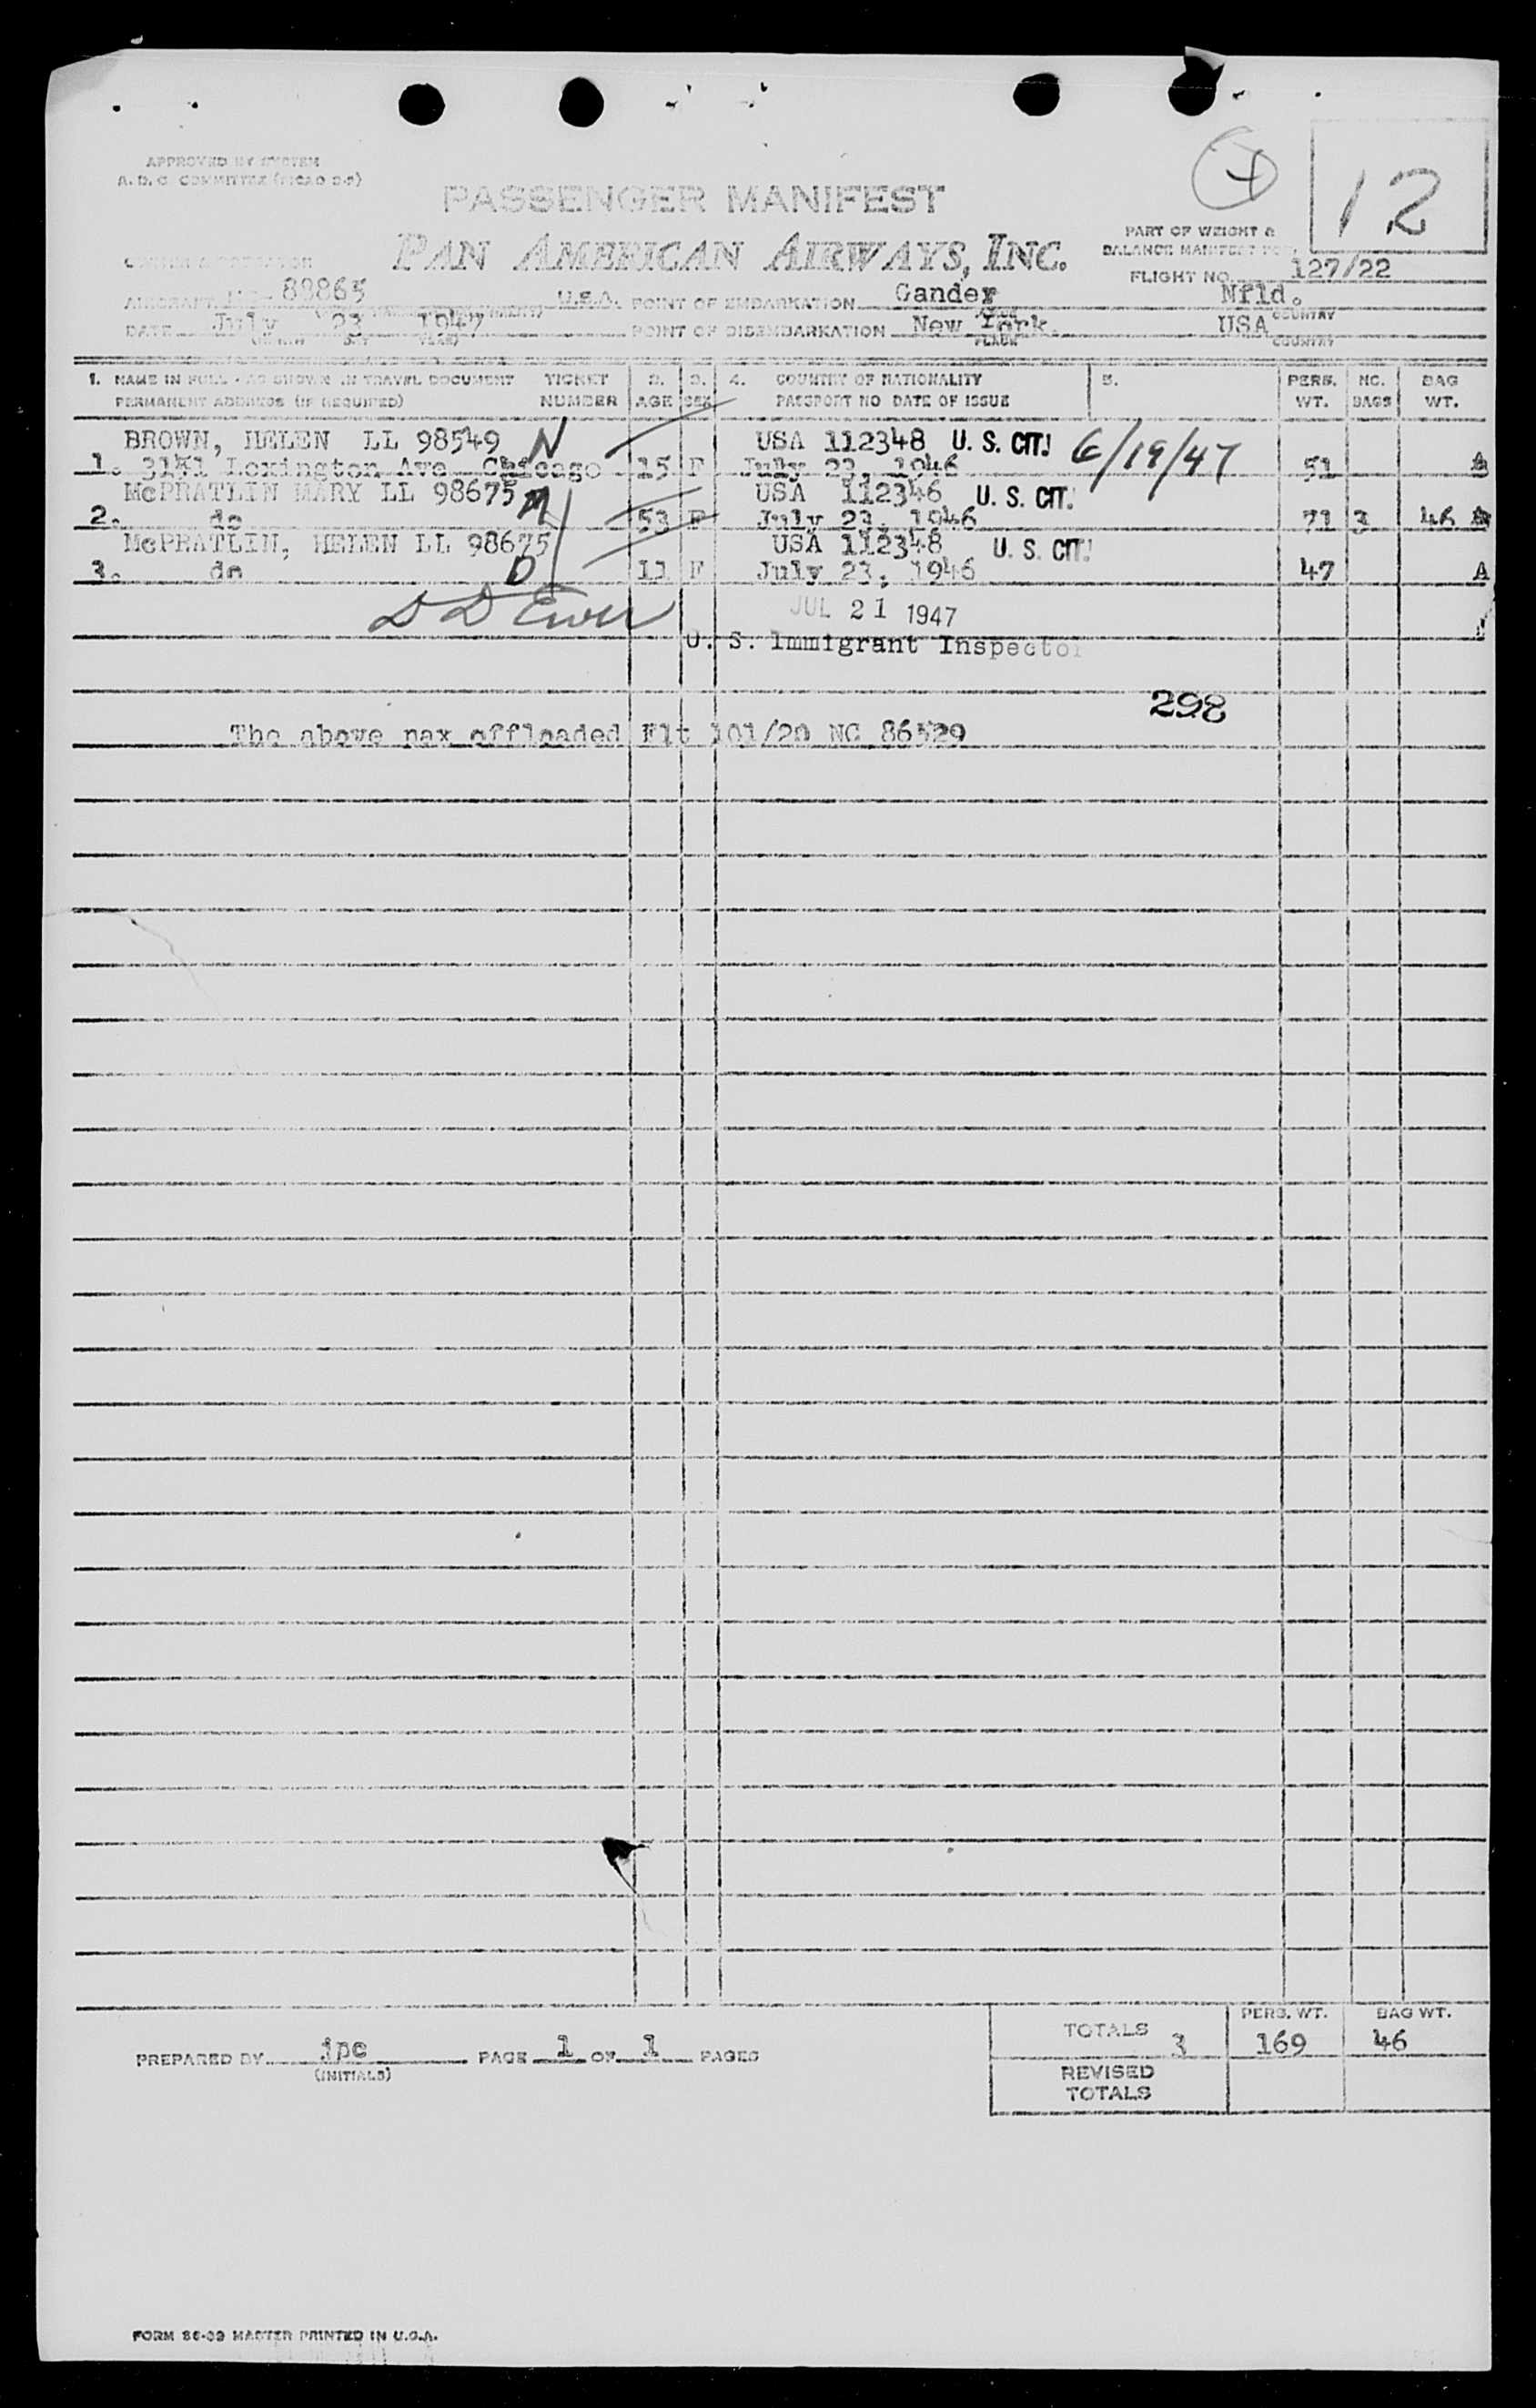 APPROVED BY SYSTEM
A. D. C COMMITTEE (PICAO D-2)
PASSENGER MANIFEST
PAN AMERICAN AIRWAYS, INC.
12
PART OF WEIGHT &
BALANCE MANIFEST NO.
FLIGHT NO. 127/22
OWNER & OPERATOR
AIRCRAFT NC- 88865 U.S.A. POINT OF EMBARKATION Gander Nfld.
PLACE COUNTRY
DATE July 23 1947 POINT OF DISEMBARKATION New York. USA
(MONTH DAY YEAR) PLACE COUNTRY
1. NAME IN FULL - AS SHOWN IN TRAVEL DOCUMENT TICKET 2. 3. 4. COUNTRY OF NATIONALITY 5. PERS. NO. BAG
PERMANENT ADDRESS (IF REQUIRED) NUMBER AGE SEX PASSPORT NO DATE OF ISSUE WT. BAGS WT.
BROWN, HELEN LL 98549 N USA 112348 U. S. CIT. 6/19/47
1. Lexington Ave Chicago 15 F July 23, 1946 51
McPRATLIN MARY LL 98675 M USA 112346 U. S. CIT.
2. do 53 F July 23, 1946 71 3 46
McPRATLIN, HELEN LL 98675 USA 112348 U. S. CIT.
3. do D 11 F July 23, 1946 47 A
JUL 21 1947
U. S. Immigrant Inspector
298
The above pax offloaded Flt 101/20 NC 86529
TOTALS 3 PERS. WT. 169 BAG WT. 46
PREPARED BY jpc PAGE 1 OF 1 PAGES
(INITIALS)
REVISED
TOTALS
FORM 86-02 MASTER PRINTED IN U.S.A.